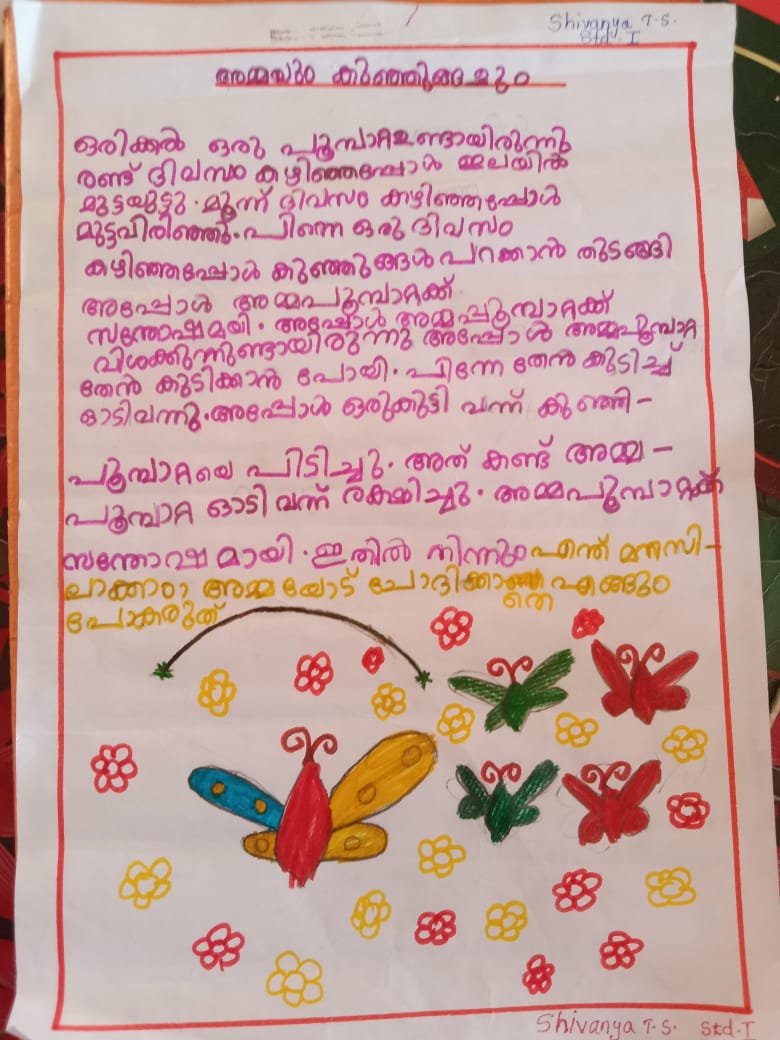 Shivanya T.S.
Std. I
അമ്മയും കുഞ്ഞുങ്ങളും
ഒരിക്കൽ ഒരു പൂമ്പാറ്റഉണ്ടായിരുന്നു
രണ്ട് ദിവസം കഴിഞ്ഞപ്പോൾ ഇലയിൽ
മുട്ടയുട്ടു. മൂന്ന് ദിവസം കഴിഞ്ഞപ്പോൾ
മുട്ടവിരിഞ്ഞു. പിന്നെ ഒരു ദിവസം
കഴിഞ്ഞപ്പോൾ കുഞ്ഞുങ്ങൾ പറക്കാൻ തുടങ്ങി
അപ്പോൾ അമ്മപൂമ്പാറ്റക്ക്
സന്തോഷമയി. അപ്പോൾ അമ്മപ്പൂമ്പാറ്റക്ക്
വിശക്കുന്നുണ്ടായിരുന്നു അപ്പോൾ അമ്മപൂമ്പാറ്റ
തേൻ കുടിക്കാൻ പോയി. പിന്നേ തേൻ കുടിച്ച്
ഓടിവന്നു. അപ്പോൾ ഒരുകുട്ടി വന്ന് കുഞ്ഞി-
പൂമ്പാറ്റയെ പിടിച്ചു. അത് കണ്ട് അമ്മ-
പൂമ്പാറ്റ ഓടി വന്ന് രക്ഷിച്ചു. അമ്മപൂമ്പാറ്റക്ക്
സന്തോഷമായി. ഇതിൽ നിന്നും എന്ത് മനസി-
ലാക്കാം അമ്മയോട് ചോദിക്കാതെ എങ്ങും
പോകരുത്
Shivanya T.S. Std. I